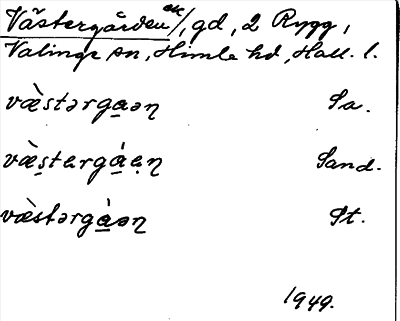 Västergården ek/, gd, 2 Rygg,
Valinge sn, Himle hd, Hall. l.
væ̀stərga̲ən Sa.
væ̀s̩tərgá̲ən̩ Sand.
væ̀stərgá̲ən St.
1949.